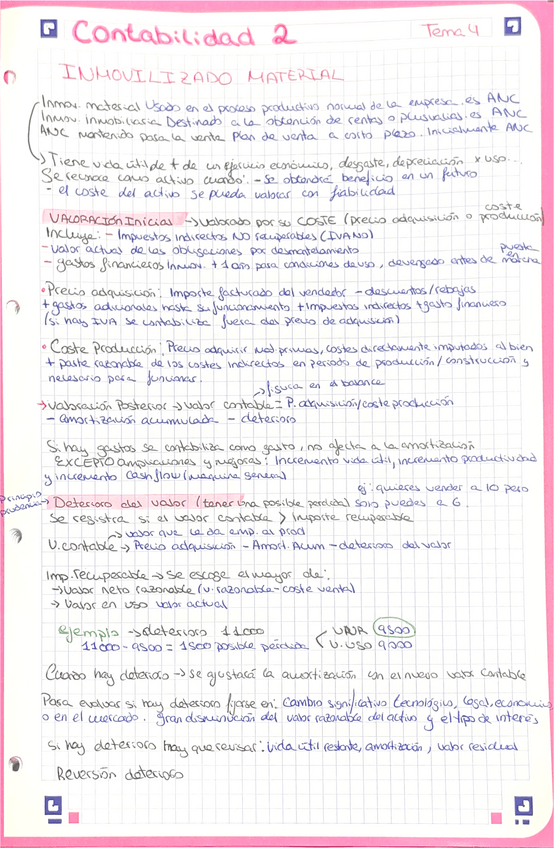 Contabilidad 2
Tema 4
INMOVILIZADO MATERIAL
Inmov. material Usado en el proceso productivo normal de la empresa. es ANC
Inmov. Inmobiliaria Destinado a la obtención de rentas o plusvalías. es ANC
ANC mantenido para la venta Plan de venta a corto plazo. Inicialmente ANC
Tiene vida útil de + de un ejercicio económico, desgaste, depreciación x uso...
Se reconoce como activo cuando: - se obtendrá beneficio en un futuro
- el coste del activo se pueda valorar con fiabilidad
VALORACIÓN Inicial → valorado por su COSTE (precio adquisición o coste producción)
Incluye: - Impuestos indirectos NO recuperables (IVA NO)
- valor actual de las obligaciones por desmantelamiento
- gastos financieros Inmov. + 1 año para condiciones de uso, devengado antes de puesta marcha
• Precio adquisición: Importe facturado del vendedor - descuentos/rebajas
+ gastos adicionales hasta su funcionamiento + impuestos indirectos + gasto financiero
(si hay IVA se contabiliza fuera del precio de adquisición)
• Coste Producción: Precio adquirir mat primas, costes directamente imputados al bien
+ parte razonable de los costes indirectos en periodo de producción/construcción y
necesario para funcionar.
→ figura en el balance
→ Valoración Posterior → valor contable = P. adquisición/coste producción
- amortización acumulada - deterioro
Si hay gastos se contabiliza como gasto, no afecta a la amortización
EXCEPTO ampliaciones y mejoras: Incremento vida útil, incremento productividad
y incremento cash flow (maquina genera)
ej: quieres vender a 10 pero
Principio prudencia → Deterioro del valor (tener una posible perdida) solo puedes a 6.
Se registra si el valor contable > Importe recuperable
→ valor que le da emp. al prod
V. contable → Precio adquisición - Amort. Acum - deterioro del valor
Imp. recuperable → Se escoge el mayor de:
→ Valor neto razonable (v. razonable - coste venta)
→ Valor en uso valor actual
ejemplo → deterioro 11000
VNR 9500
11000 - 9500 = 1500 posible pérdida
V. USO 9000
Cuando hay deterioro → se ajustará la amortización con el nuevo valor contable
Para evaluar si hay deterioro fijarse en: Cambio significativo tecnológico, legal, economico
o en el mercado. gran disminución del valor razonable del activo y el tipo de interés
Si hay deterioro hay que revisar: vida útil restante, amortización, valor residual
Reversión deterioro